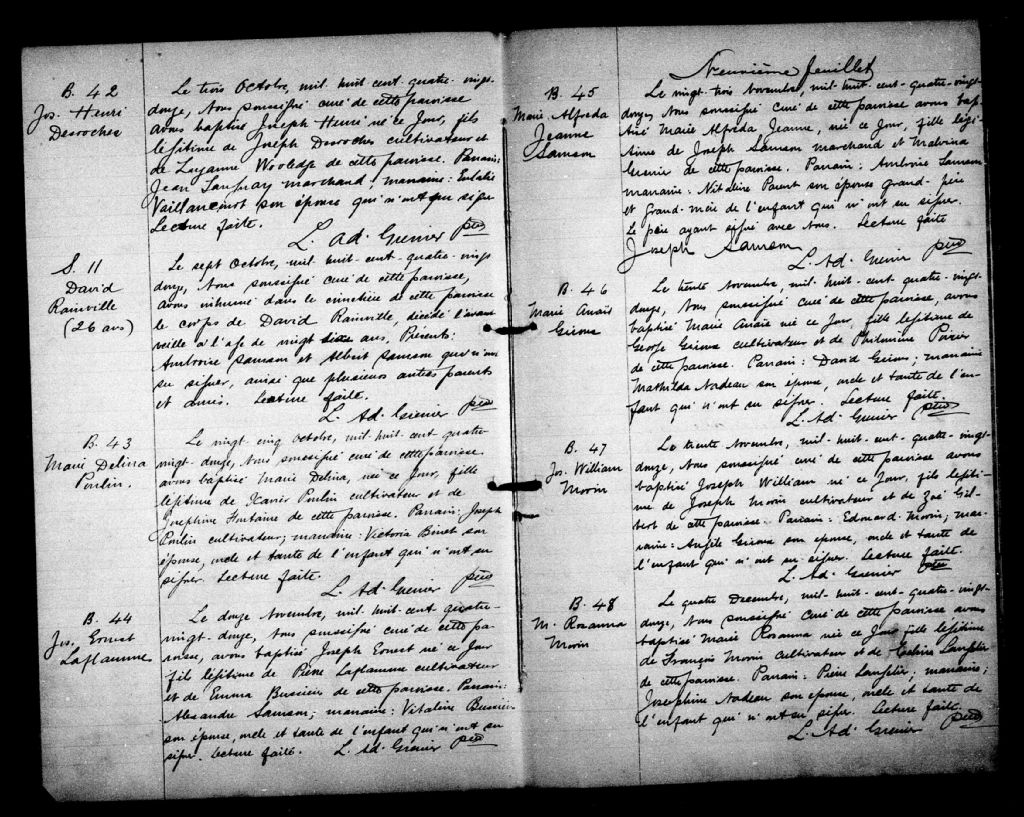 B. 42
Jos. Henri
Desroches
Le trois Octobre, mil huit cent-quatre-vingt-
douze, Nous soussigné curé de cette paroisse
avons baptisé Joseph Henri né ce Jour, fils
légitime de Joseph Desroches cultivateur et
de Wooledge de cette paroisse. Parrain:
Jean marchand; marraine: Eulalie
Vaillancourt son épouse qui n'ont pu signer
Lecture faite.
L. Ad. Grenier ptre
S. 11
David
Rainville
(26 ans)
Le sept Octobre, mil-huit-cent-quatre-vingt
douze, Nous soussigné curé de cette paroisse,
avons inhumé dans le cimetière de cette paroisse
le corps de David Rainville, décédé l'avant
veille à l'age de vingt ans, Présents:
Ambroise Samson et Albert Samson qui n'ont
su signer, ainsi que plusieurs autres parents
et amis. Lecture faite.
L. Ad. Grenier ptre
B. 43
Marie Delina
Poulin.
Le vingt cinq octobre, mil-huit-cent-quatre-
vingt-douze, Nous soussigné curé de cette paroisse
avons baptisé Marie Delina, née ce Jour, fille
légitime de Xavier Poulin cultivateur et de
Josephine Fontaine de cette paroisse. Parrain: Joseph
Poulin cultivateur; marraine: Victoria Binet son
épouse, oncle et tante de l'enfant qui n'ont su
signer. Lecture faite.
L. Ad. Grenier ptre
B. 44
Jos. Ernest
Laflamme
Le douze Novembre, mil-huit-cent quatre-
vingt-douze, Nous soussigné curé de cette pa-
roisse, avons baptisé Joseph Ernest né ce Jour
fils légitime de Pierre Laflamme cultivateur
et de Emma Bussière de cette paroisse. Parrain:
Alexandre Samson; marraine: Vitaline Bussière
son épouse, oncle et tante de l'enfant qui n'ont su
signer. Lecture faite. L. Ad. Grenier ptre
Neuvième feuillet
B. 45
Marie Alfreda
Jeanne
Samson
Le vingt-trois Novembre, mil-huit-cent-quatre-vingt-
douze, Nous soussigné curé de cette paroisse avons bap-
tisé Marie Alfreda Jeanne, née ce Jour, fille légi-
time de Joseph Samson marchand et Malvina
Grenier de cette paroisse. Parrain: Ambroise Samson
marraine: Nataline Parent son épouse grand-père
et Grand-mère de l'enfant qui n'ont su signer.
Le père ayant signé avec Nous. Lecture faite
Joseph Samson
L. Ad. Grenier ptre
B. 46
Marie Anaïs
Giroux
Le trente Novembre, mil-huit-cent-quatre-vingt-
douze, Nous soussigné curé de cette paroisse, avons
baptisé Marie Anaïs née ce Jour, fille légitime de
George Giroux cultivateur et de Philomène Poirier
de cette paroisse. Parrain: David Giroux; marraine
Mathilde Nadeau son épouse, oncle et tante de l'en-
fant qui n'ont su signer. Lecture faite.
L. Ad. Grenier ptre
B. 47
Jos. William
Morin
Le trente Novembre, mil-huit-cent-quatre-vingt-
douze, Nous soussigné curé de cette paroisse avons
baptisé Joseph William né ce Jour, fils légiti-
me de Joseph Morin cultivateur et de Zoé Gil-
bert de cette paroisse. Parrain: Edouard Morin; mar-
raine: Angèle Giroux son épouse, oncle et tante de
l'enfant qui n'ont su signer. Lecture faite.
L. Ad. Grenier ptre
B. 48
M. Rosanna
Morin
Le quatre Decembre, mil-huit-cent-quatre-vingt-
douze, Nous soussigné curé de cette paroisse avons
baptisé Marie Rosanna née ce Jour fille légitime
de François Morin cultivateur et de Langelier
de cette paroisse. Parrain: Pierre Langelier; marraine;
Josephine Nadeau son épouse, oncle et tante de
l'enfant qui n'ont su signer. Lecture faite.
L. Ad. Grenier ptre